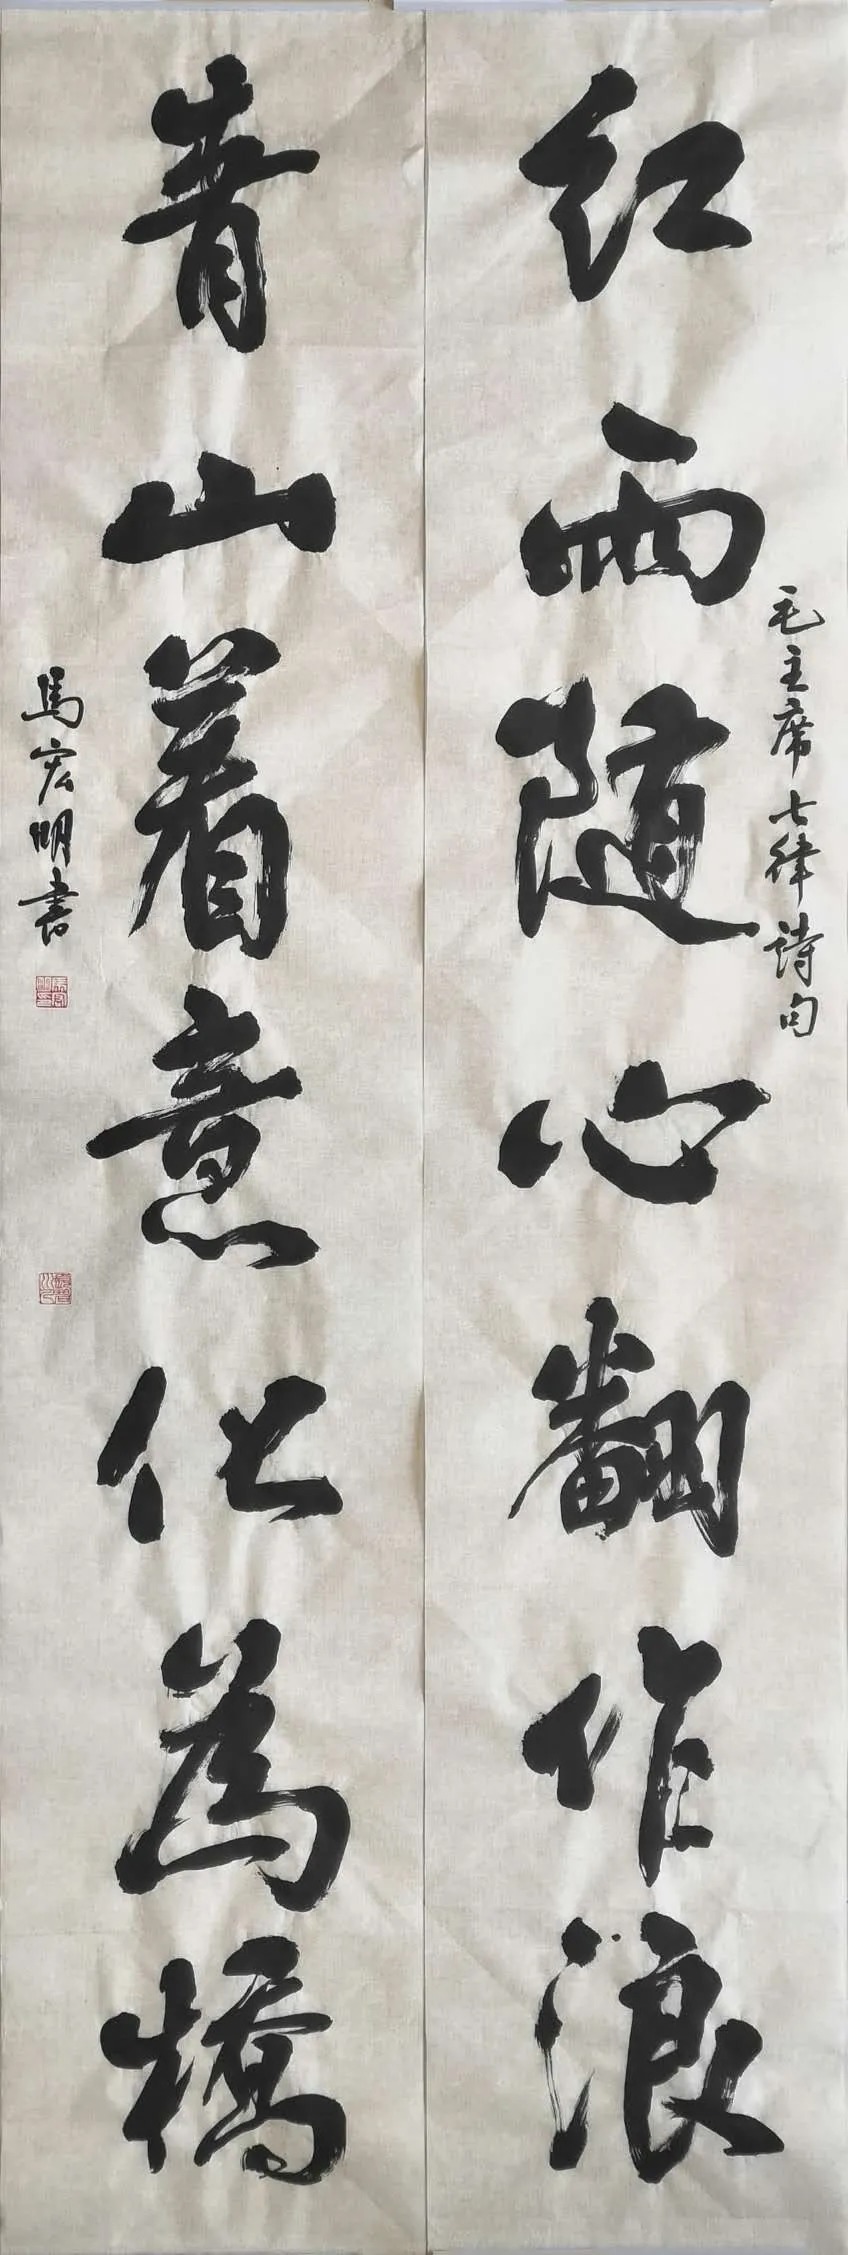 红雨随心翻作浪
毛主席七律诗句
青山着意化為橋
馬宏明書